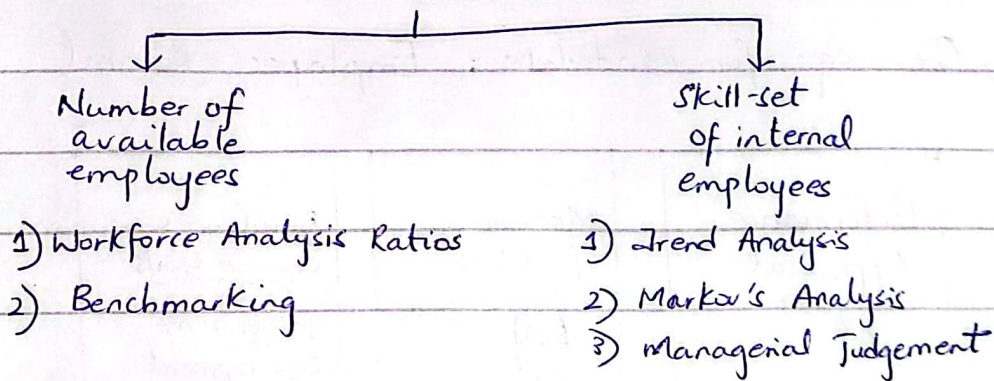 Number of
available
employees
1) Workforce Analysis Ratios
2) Benchmarking
Skill-set
of internal
employees
1) Trend Analysis
2) Markov's Analysis
3) Managerial Judgement